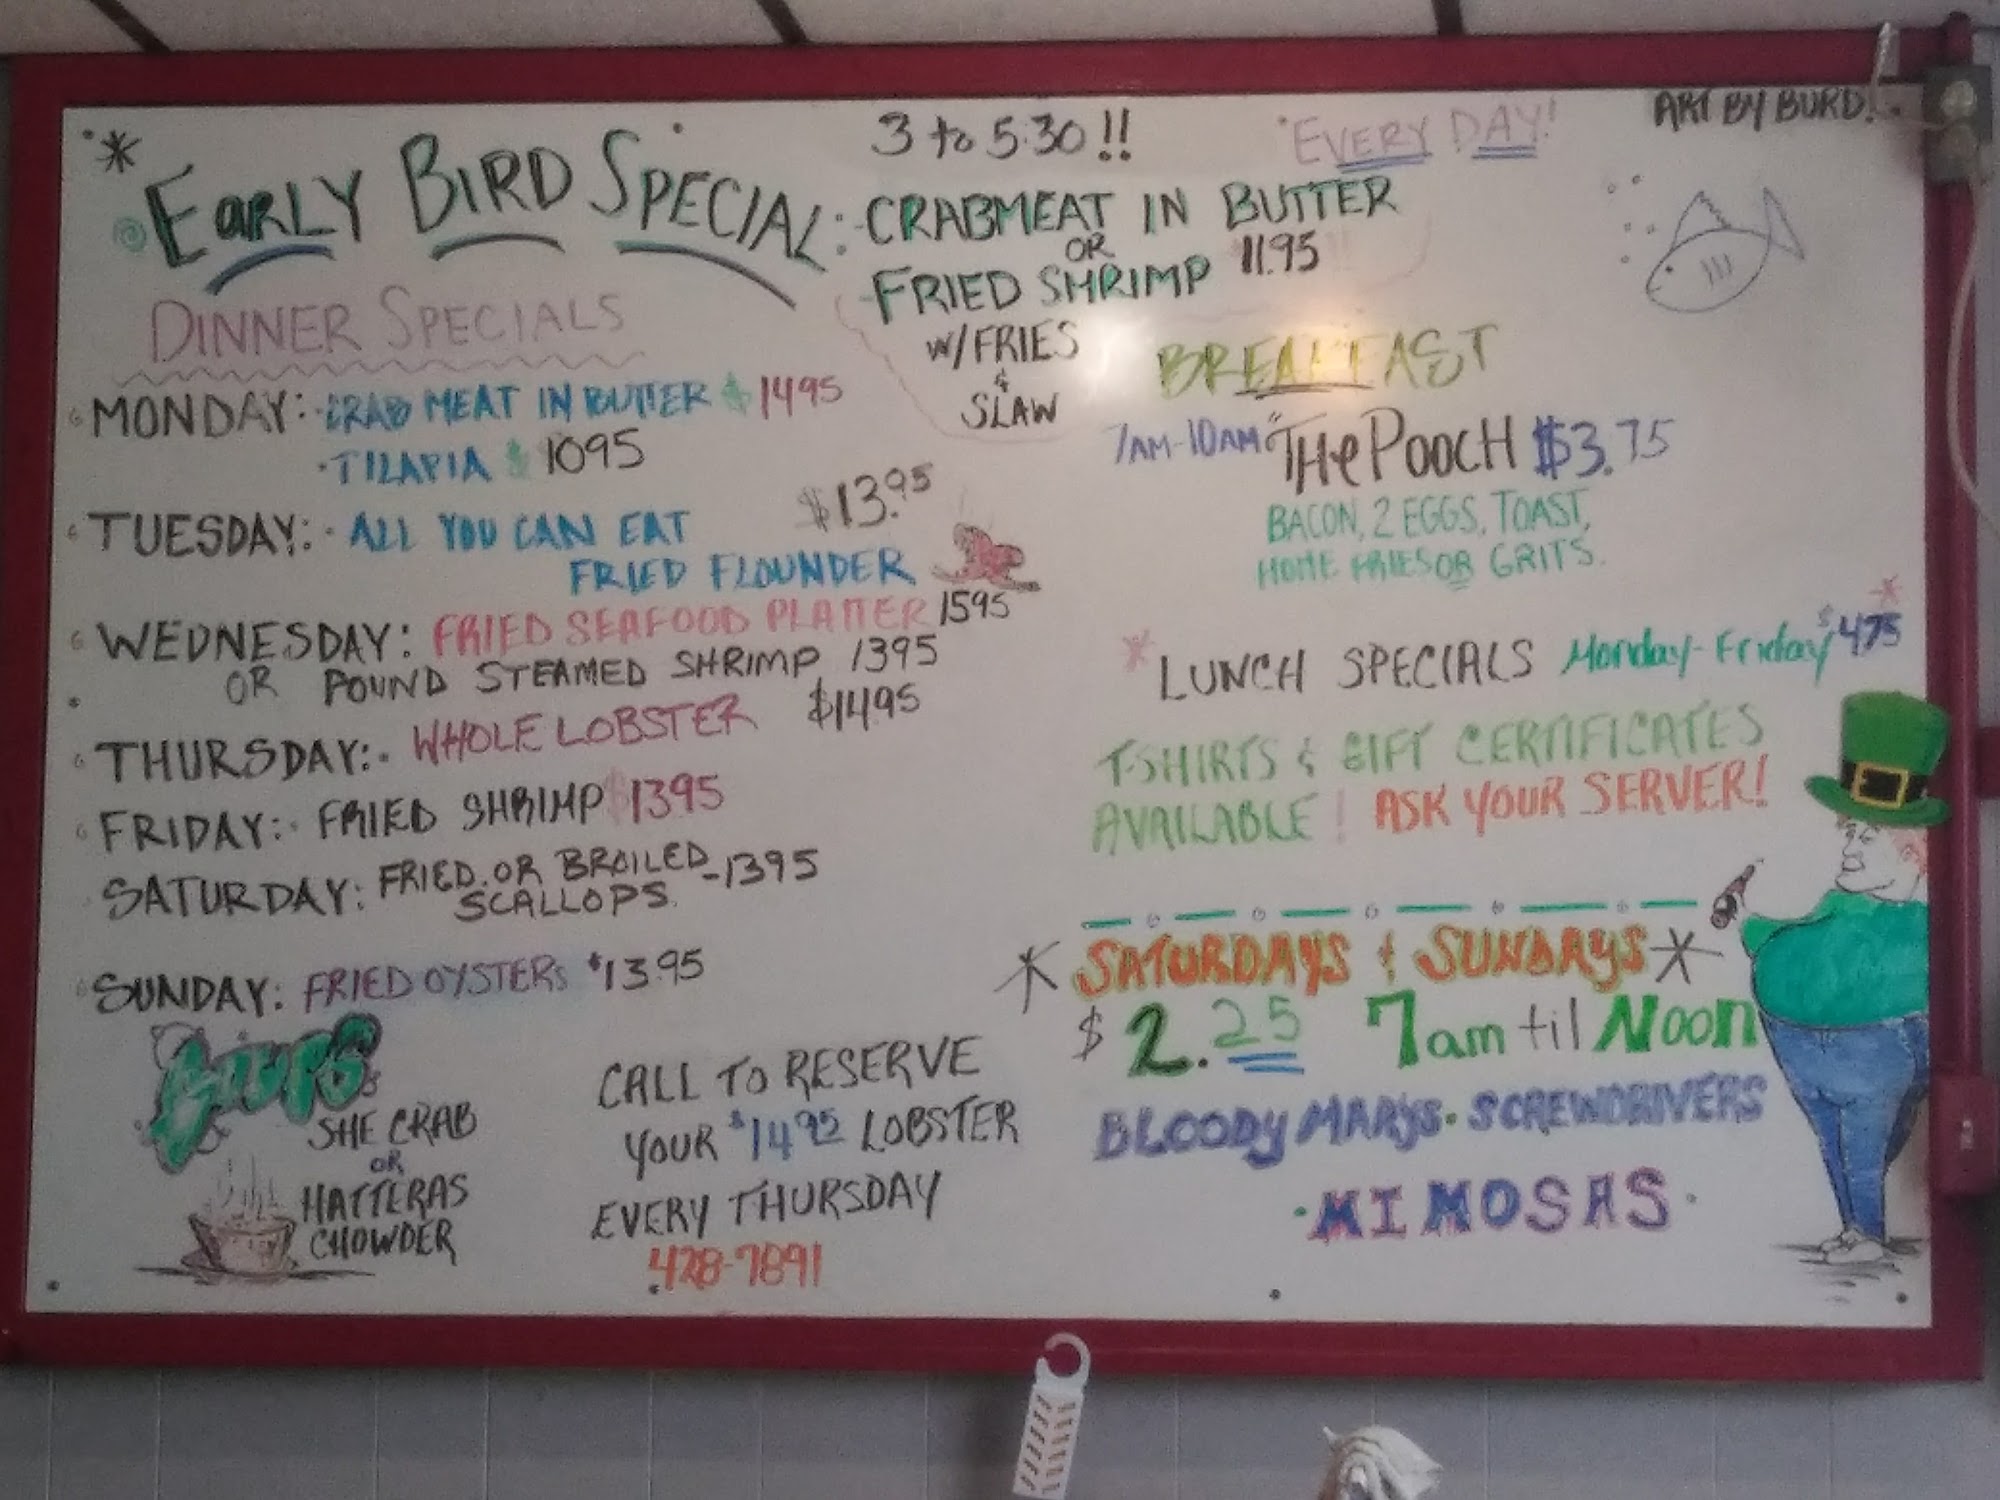 ART BY BURD.
3 to 5:30!! EVERY DAY!
* EARLY BIRD SPECIAL: CRABMEAT IN BUTTER
OR
FRIED SHRIMP 11.95
W/FRIES
&
SLAW
DINNER SPECIALS
MONDAY: · CRAB MEAT IN BUTTER $1495
· TILAPIA $1095
TUESDAY: · ALL YOU CAN EAT $13.95
FRIED FLOUNDER
WEDNESDAY: FRIED SEAFOOD PLATTER 1595
OR POUND STEAMED SHRIMP 1395
THURSDAY: · WHOLE LOBSTER $1495
FRIDAY: · FRIED SHRIMP $1395
SATURDAY: FRIED OR BROILED - 1395
SCALLOPS
SUNDAY: FRIED OYSTERS $13.95
SOUPS
SHE CRAB
OR
HATTERAS
CHOWDER
CALL TO RESERVE
YOUR $1495 LOBSTER
EVERY THURSDAY
428-7891
BREAKFAST
7AM-10AM "THE POOCH $3.75
BACON, 2 EGGS, TOAST,
HOME FRIES OR GRITS.
* LUNCH SPECIALS Monday-Friday $475 *
T-SHIRTS & GIFT CERTIFICATES
AVAILABLE! ASK YOUR SERVER!
* SATURDAYS & SUNDAYS *
$2.25 7am til Noon
BLOODY MARYS · SCREWDRIVERS
· MIMOSAS ·